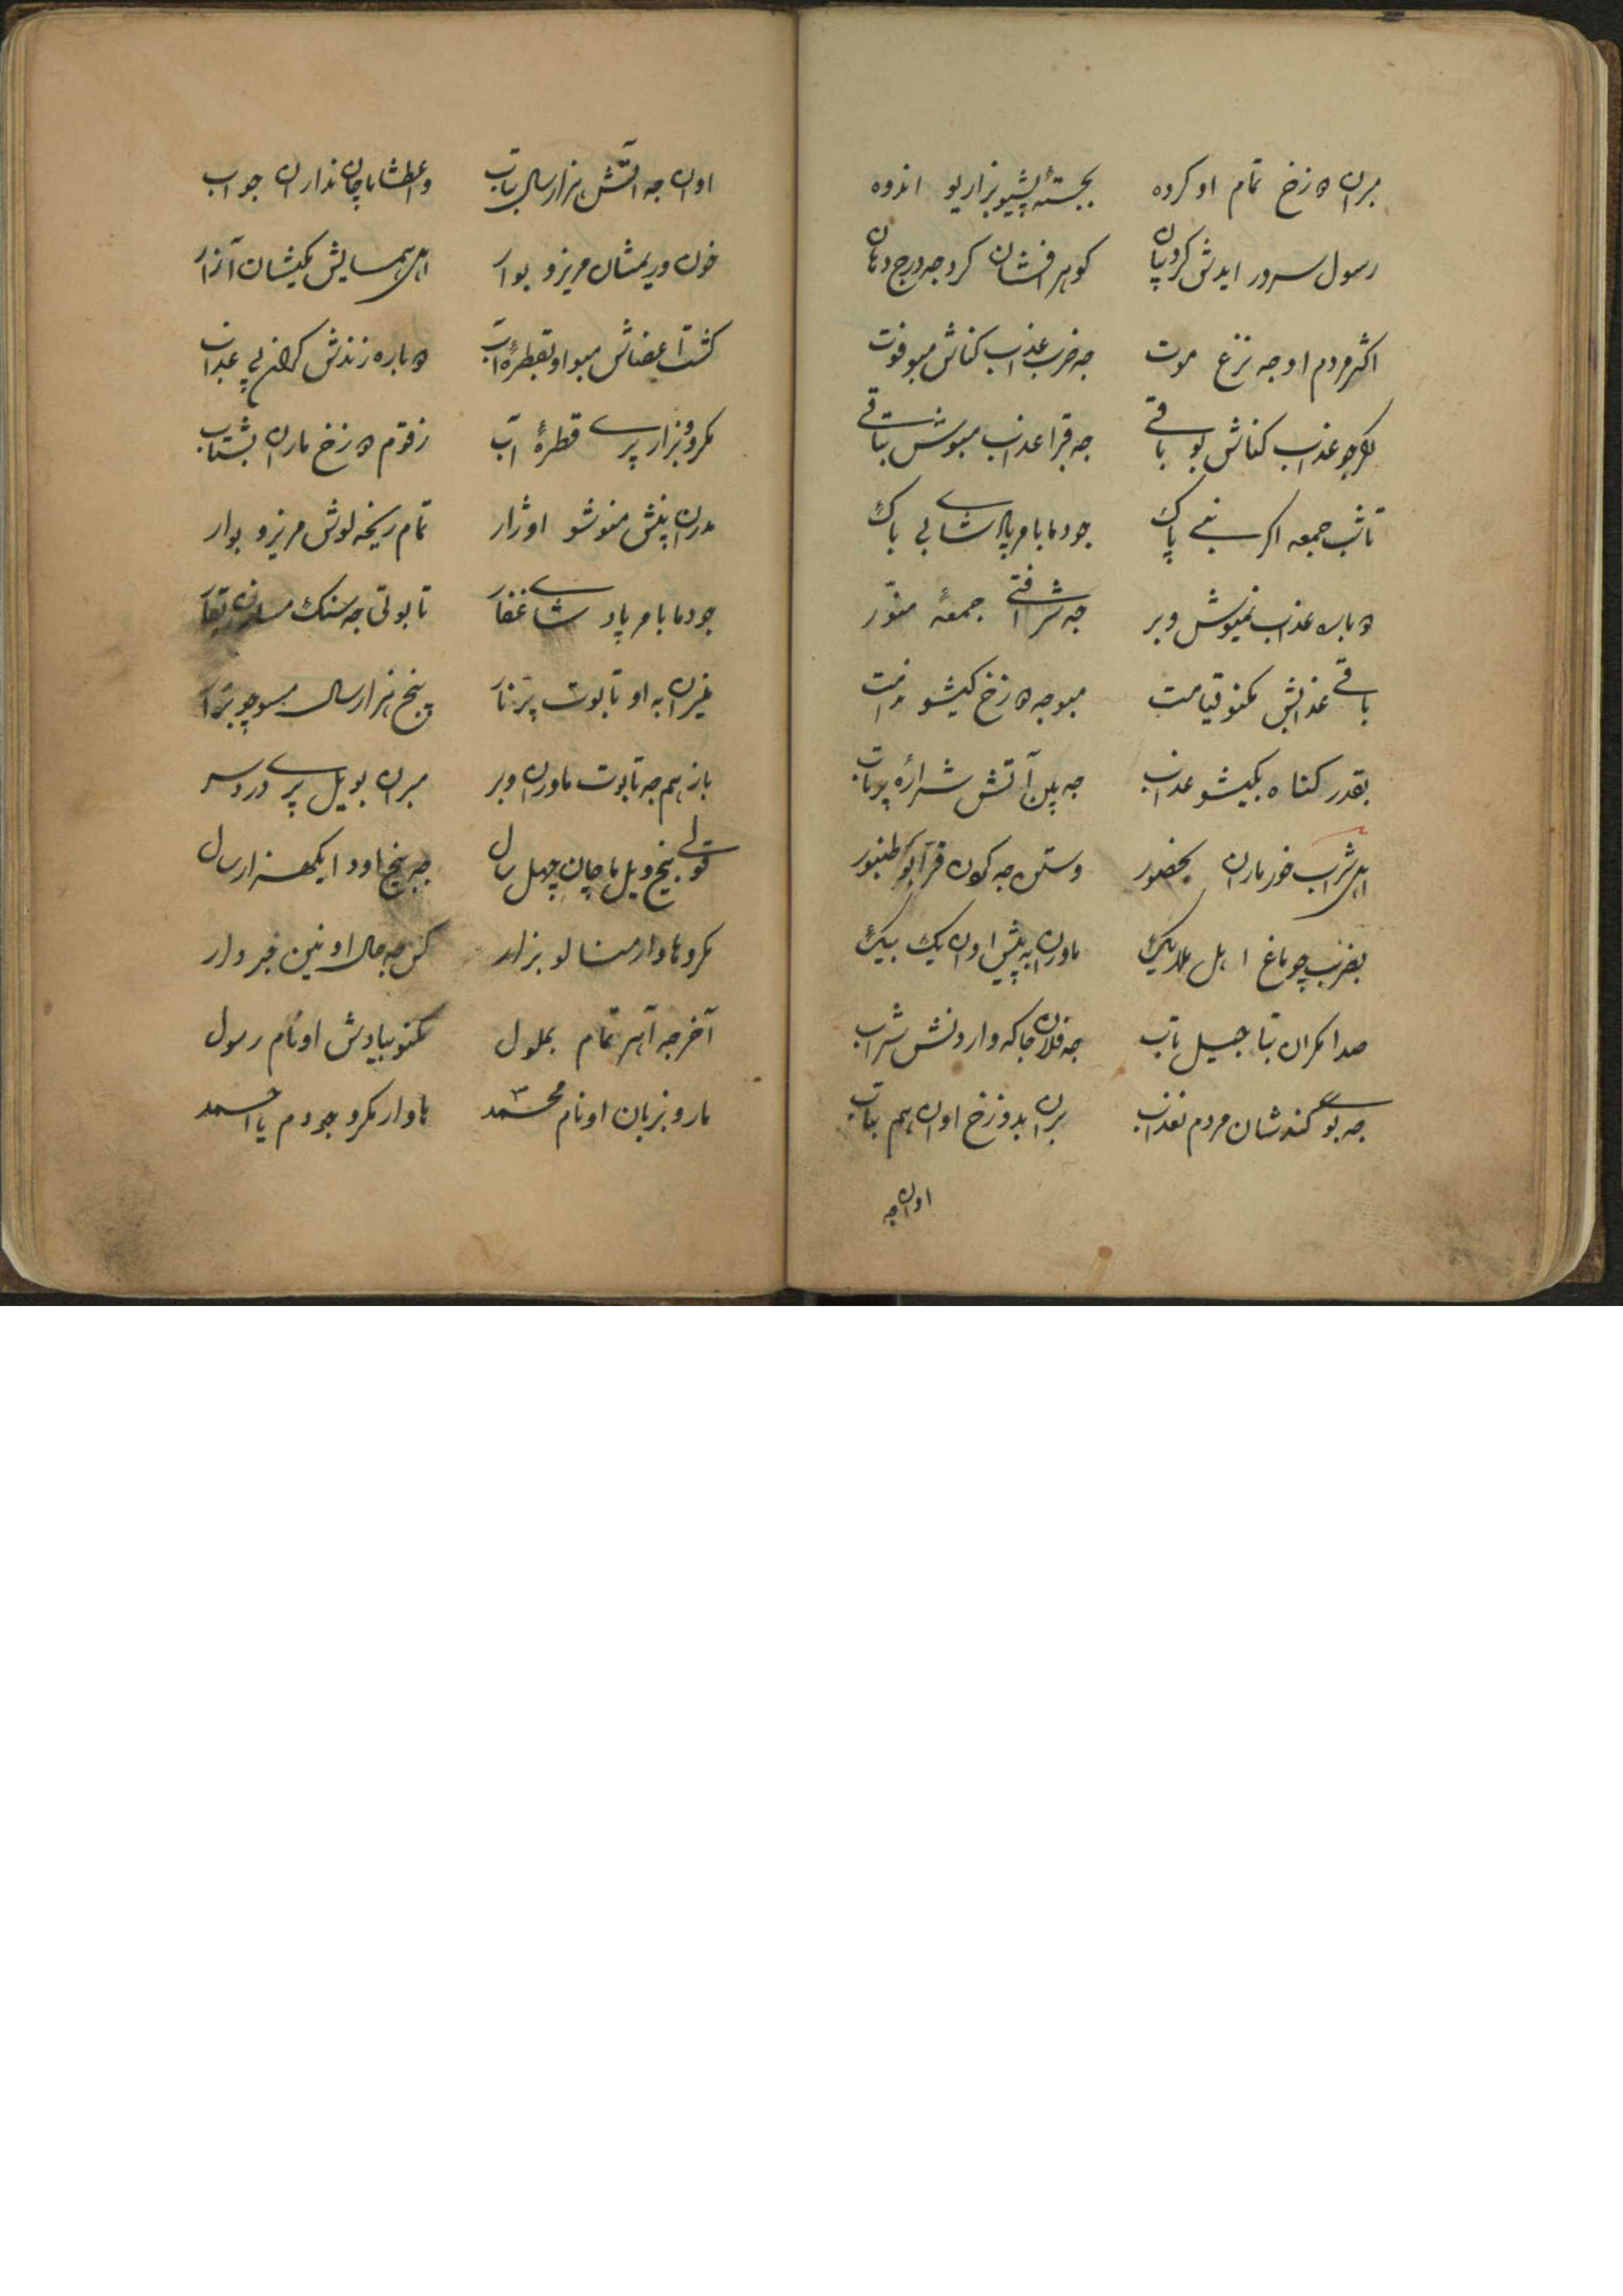 مبران دوزخ تمام او کروه بجستهٔ پشیو بزاریو اندوه
رسول سرور ایدش کرد بیان کوهر افشان کرد جه درج دهان
اکثر مردم او جه نزع موت جه ضرب عذاب کناش مبو فوت
جو عذاب کناش بو باقی جه قبرا عذاب مبوش باقی
تا شب جمعه اکر بنی پاک جو دما بامر پادشای بی باک
دوباره عذاب نمیوش وبر جه شرافتی جمعهٔ منوّر
باقی عذابش مکنو قیامت مبو جه دوزخ کیشو ندامت
بقدر کناه بکیشو عذاب جه بین آتش شرارهٔ پرتاب
اهل شراب خور ماران بحضور وستن جه کردن طنبور
بضرب چوماغ اهل ملایک ماوران به پیش اوان یک بیک
صدا مکران بتاجیل تاب جه فلان جاکه واردنش شراب
جه بوی کندشان مردم نه عذاب بران بدوزخ اوان هم بتاب
اوان جه
اوان جه آتش هزار سال بتاب واعطشا ماچان ندارن جواب
خون و ریمشان مریزو بوار اهل همسایش مکیشان آزار
کشت اعضاش مبو او بقطرهٔ آب دوباره زندش کران پی عذاب
مکرو بزار پری قطرهٔ آب زقوم دوزخ ماران بشتاب
مدران پنش منوشو او ژار تمام ریخه لوش مریزو بوار
جو دما بامر پادشای غفار تابوتی جه سنک مسازان تیار
مخیزان به او تابوت پرنار پنج هزار سال مسوچو بزار
باز هم جه تابوت ماوران وبر مبران بویل پری درد سر
قولی پنج ویل ماچان چهل سال جه پنج اودا یکهزار سال
مکرو هاوار منالو بزار کس جه حال او نین خبردار
آخر جه آهر تمام بملول مکنو بیادش او نام رسول
مارو بزبان او نام محمّد هاوار مکرو جو دم یا احمد